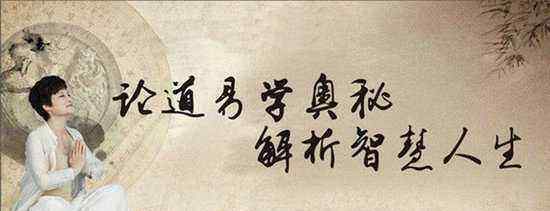 论道易学奥秘
解析智慧人生